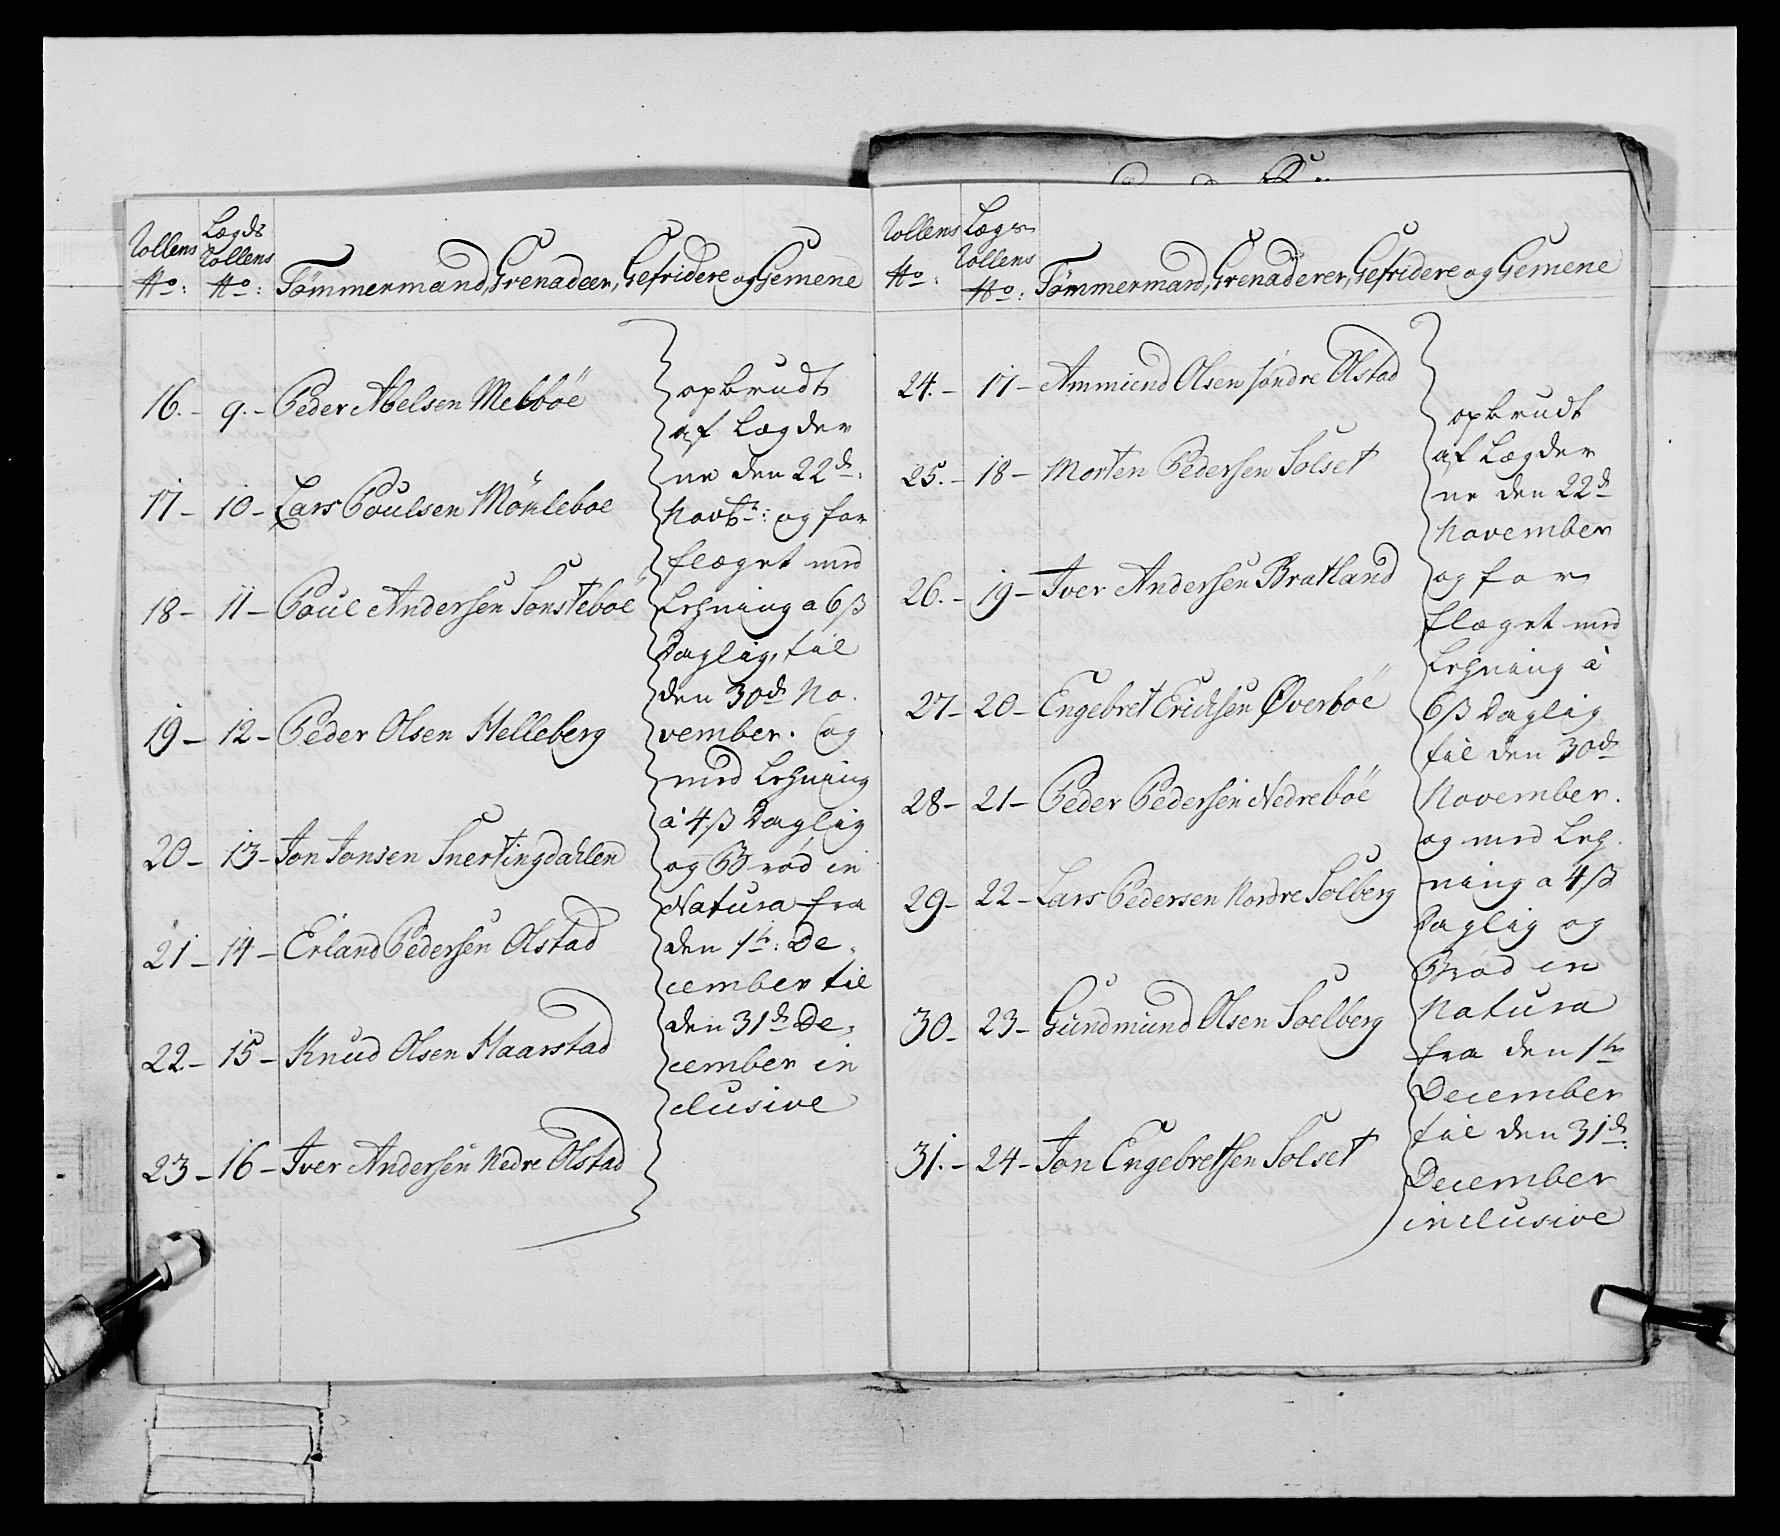 Rollens No:
Lægds Rollens No:
Tømmermand, Grenadeer, Gefridere og Gemene
16. - 9. - Peder Abelsen Melböe
17 - 10 - Lars Poulsen Möhleboe
18 - 11 - Poul Andersen Sonsteböe
19 - 12 - Peder Olsen Helleberg
20 - 13 - Jon Jonsen Snertingdahlen
21 - 14 - Erland Pedersen Olstad
22 - 15 - Knud Olsen Haarstad
23 - 16 - Iver Andersen Nedre Olstad
opbrudt
af Lægder
ne den 22de:
Novbr: og for
flæget med
Lehning a 6 ß
Daglig, til
den 30de No.
vember. og
med Lehning
à 4 ß Daglig
og Brød in
Natura fra
den 1te: De,
cember til
den 31de De,
cember in
clusive
Rollens No:
Lægds Rollens No:
Tømmermand, Grenaderer, Gefridere og Gemene
24. - 17 - Ammund Olsen söndre Olstad
25. - 18 - Morten Pedersen Solset
26. - 19 - Iver Andersen Bratland
27 - 20 - Engebret Erichsen Øverböe
28 - 21 - Peder Pedersen Nedreböe
29 - 22 - Lars Pedersen Nordre Solberg
30 - 23 - Gundmund Olsen Soelberg
31. - 24 - Jon Engebretsen Solset
opbrudt
af Lægder
ne den 22de
November
og for
flæget med
Lehning à
6 ß Daglig
til den 30de
November.
og med Leh.
ning a 4 ß
Daglig og
Brød in
Natura
fra den 1te
December
til den 31de
December
inclusive